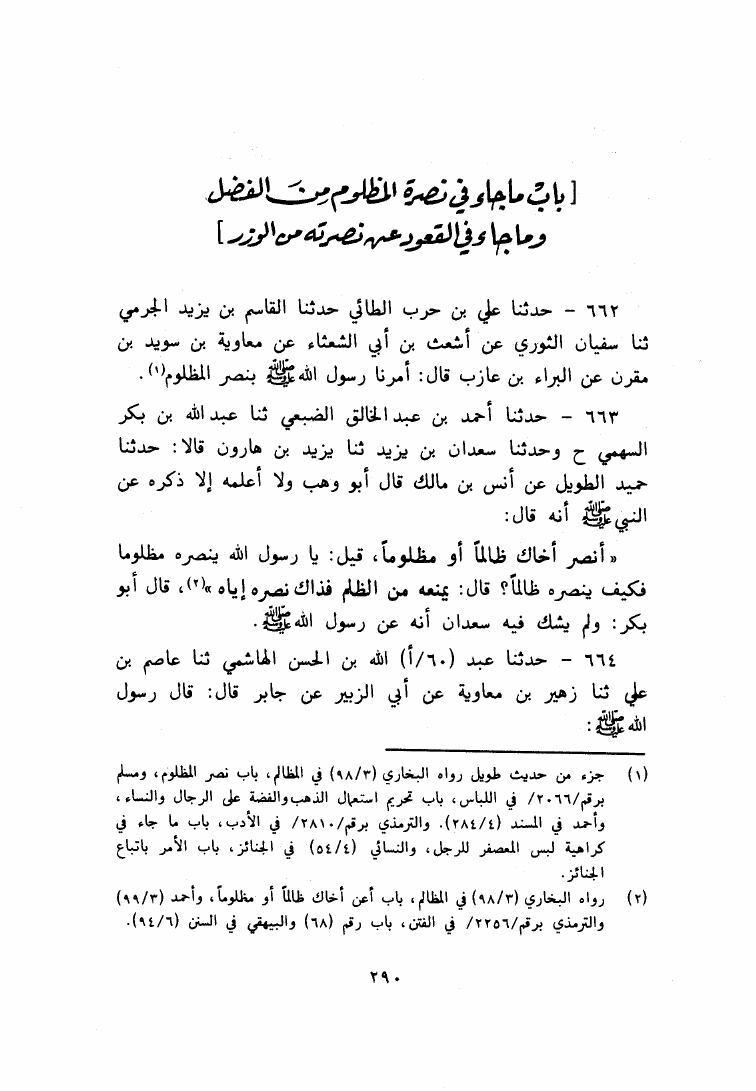 [ بابُ ماجاء في نصرة المظلوم مِنَ الفضل
وماجاء في القعود عن نصرته من الوزر ]
٦٦٢ – حدثنا علي بن حرب الطائي حدثنا القاسم بن يزيد الجرمي
ثنا سفيان الثوري عن أشعث بن أبي الشعثاء عن معاوية بن سويد بن
مقرن عن البراء بن عازب قال: أمرنا رسول الله ﷺ بنصر المظلوم(١).
٦٦٣ – حدثنا أحمد بن عبد الخالق الضبعي ثنا عبد الله بن بكر
السهمي ح وحدثنا سعدان بن يزيد ثنا يزيد بن هارون قالا: حدثنا
حميد الطويل عن أنس بن مالك قال أبو وهب ولا أعلمه إلا ذكره عن
النبي ﷺ أنه قال:
« أنصر أخاك ظالماً أو مظلوماً، قيل: يا رسول الله ينصره مظلوما
فكيف ينصره ظالماً؟ قال: يمنعه من الظلم فذاك نصره إياه »(٢)، قال أبو
بكر: ولم يشك فيه سعدان أنه عن رسول الله ﷺ.
٦٦٤ – حدثنا عبد (٦٠/أ) الله بن الحسن الهاشمي ثنا عاصم بن
علي ثنا زهير بن معاوية عن أبي الزبير عن جابر قال: قال رسول
الله ﷺ:
(١) جزء من حديث طويل رواه البخاري (٩٨/٣) في المظالم، باب نصر المظلوم، ومسلم
برقم/٢٠٦٦/ في اللباس، باب تحريم استعمال الذهب والفضة على الرجال والنساء،
وأحمد في المسند (٢٨٤/٤). والترمذي برقم/٢٨١٠/ في الأدب، باب ما جاء في
كراهية لبس المعصفر للرجل، والنسائي (٥٤/٤) في الجنائز، باب الأمر باتباع
الجنائز.
(٢) رواه البخاري (٩٨/٣) في المظالم، باب أعن أخاك ظالماً أو مظلوماً، وأحمد (٩٩/٣)
والترمذي برقم/٢٢٥٦/ في الفتن، باب رقم (٦٨) والبيهقي في السنن (٩٤/٦).
٢٩٠